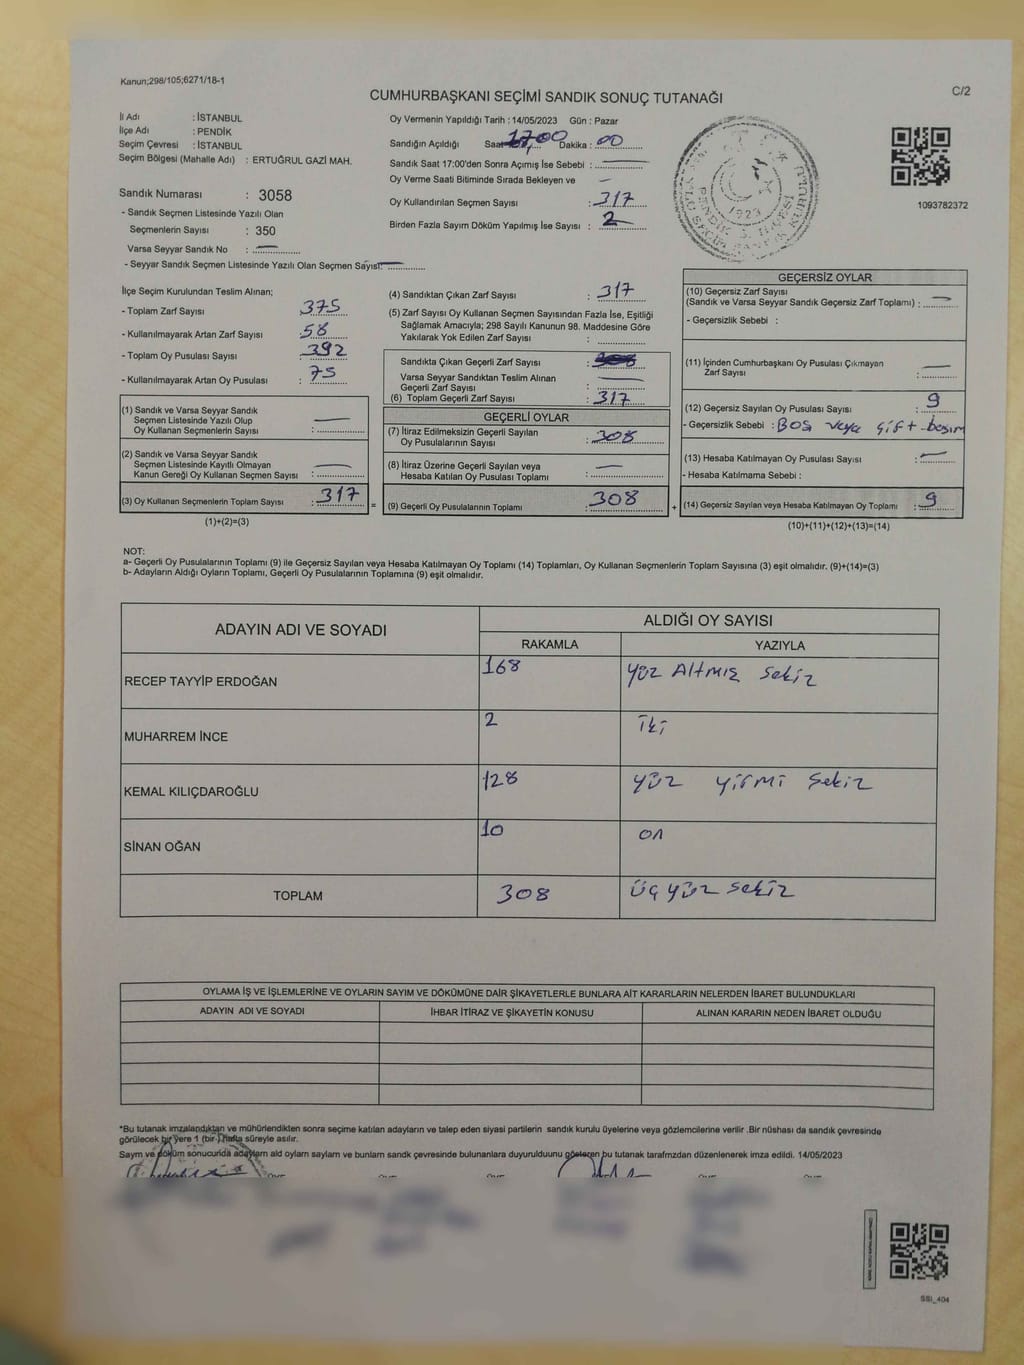 Kanun;298/105;6271/18-1
C/2
CUMHURBAŞKANI SEÇİMİ SANDIK SONUÇ TUTANAĞI
İl Adı : İSTANBUL
İlçe Adı : PENDİK
Seçim Çevresi : İSTANBUL
Seçim Bölgesi (Mahalle Adı) : ERTUĞRUL GAZİ MAH.
Sandık Numarası : 3058
- Sandık Seçmen Listesinde Yazılı Olan
Seçmenlerin Sayısı : 350
Varsa Seyyar Sandık No : —
- Seyyar Sandık Seçmen Listesinde Yazılı Olan Seçmen Sayısı: —
Oy Vermenin Yapıldığı Tarih : 14/05/2023 Gün : Pazar
Sandığın Açıldığı Saat 17,00 Dakika : 00
Sandık Saat 17:00'den Sonra Açımış İse Sebebi : —
Oy Verme Saati Bitiminde Sırada Bekleyen ve —
Oy Kullandırılan Seçmen Sayısı : 317
Birden Fazla Sayım Döküm Yapılmış İse Sayısı : 2
1923
1093782372
İlçe Seçim Kurulundan Teslim Alınan;
- Toplam Zarf Sayısı : 375
- Kullanılmayarak Artan Zarf Sayısı : 58
- Toplam Oy Pusulası Sayısı : 392
- Kullanılmayarak Artan Oy Pusulası : 75
(1) Sandık ve Varsa Seyyar Sandık
Seçmen Listesinde Yazılı Olup
Oy Kullanan Seçmenlerin Sayısı : —
(2) Sandık ve Varsa Seyyar Sandık
Seçmen Listesinde Kayıtlı Olmayan
Kanun Gereği Oy Kullanan Seçmen Sayısı : —
(3) Oy Kullanan Seçmenlerin Toplam Sayısı : 317
(1)+(2)=(3)
=
(4) Sandıktan Çıkan Zarf Sayısı : 317
(5) Zarf Sayısı Oy Kullanan Seçmen Sayısından Fazla İse, Eşitliği
Sağlamak Amacıyla; 298 Sayılı Kanunun 98. Maddesine Göre
Yakılarak Yok Edilen Zarf Sayısı :
Sandıkta Çıkan Geçerli Zarf Sayısı :
Varsa Seyyar Sandıktan Teslim Alınan
Geçerli Zarf Sayısı : —
(6) Toplam Geçerli Zarf Sayısı : 317
GEÇERLİ OYLAR
(7) İtiraz Edilmeksizin Geçerli Sayılan
Oy Pusulalarının Sayısı : 308
(8) İtiraz Üzerine Geçerli Sayılan veya
Hesaba Katılan Oy Pusulası Toplamı : —
(9) Geçerli Oy Pusulalarının Toplamı : 308
+
GEÇERSİZ OYLAR
(10) Geçersiz Zarf Sayısı
(Sandık ve Varsa Seyyar Sandık Geçersiz Zarf Toplamı) : —
- Geçersizlik Sebebi :
(11) İçinden Cumhurbaşkanı Oy Pusulası Çıkmayan
Zarf Sayısı : —
(12) Geçersiz Sayılan Oy Pusulası Sayısı : 9
- Geçersizlik Sebebi : Boş veya çift basım
(13) Hesaba Katılmayan Oy Pusulası Sayısı : —
- Hesaba Katılmama Sebebi :
(14) Geçersiz Sayılan veya Hesaba Katılmayan Oy Toplamı : 9
(10)+(11)+(12)+(13)=(14)
NOT:
a- Geçerli Oy Pusulalarının Toplamı (9) ile Geçersiz Sayılan veya Hesaba Katılmayan Oy Toplamı (14) Toplamları, Oy Kullanan Seçmenlerin Toplam Sayısına (3) eşit olmalıdır. (9)+(14)=(3)
b- Adayların Aldığı Oyların Toplamı, Geçerli Oy Pusulalarının Toplamına (9) eşit olmalıdır.
ADAYIN ADI VE SOYADI
ALDIĞI OY SAYISI
RAKAMLA YAZIYLA
RECEP TAYYİP ERDOĞAN 168 Yüz Altmış sekiz
MUHARREM İNCE 2 İki
KEMAL KILIÇDAROĞLU 128 yüz yirmi sekiz
SİNAN OĞAN 10 on
TOPLAM 308 Üç yüz sekiz
OYLAMA İŞ VE İŞLEMLERİNE VE OYLARIN SAYIM VE DÖKÜMÜNE DAİR ŞİKAYETLERLE BUNLARA AİT KARARLARIN NELERDEN İBARET BULUNDUKLARI
ADAYIN ADI VE SOYADI İHBAR İTİRAZ VE ŞİKAYETİN KONUSU ALINAN KARARIN NEDEN İBARET OLDUĞU
*Bu tutanak imzalandıktan ve mühürlendikten sonra seçime katılan adayların ve talep eden siyasi partilerin sandık kurulu üyelerine veya gözlemcilerine verilir .Bir nüshası da sandık çevresinde
görülecek bir yere 1 (bir ) hafta süreyle asılır.
Sayım ve döküm sonucurida adayların ald oyların saylam ve bunlarm sandk çevresinde bulunanlara duyurulduunu gösteren bu tutanak tarafmzdan düzenlenerek imza edildi. 14/05/2023
SSI_404